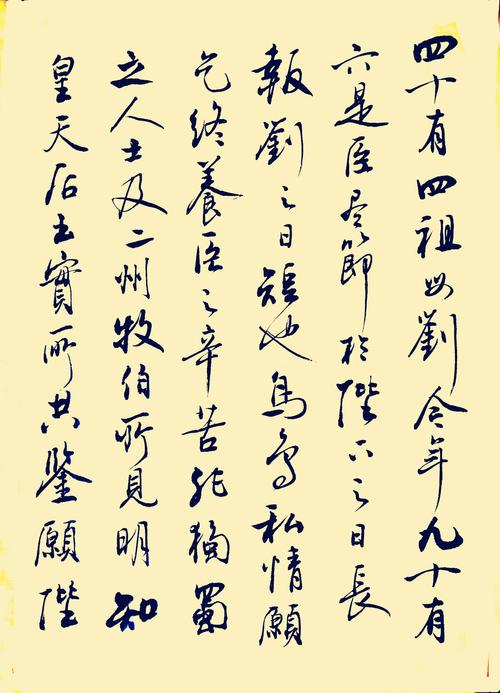 四十有四祖母劉今年九十有
六是臣尽節於陛下之日長
報劉之日短也烏鳥私情願
乞終養臣之辛苦非獨蜀
之人士及二州牧伯所見明知
皇天后土實所共鑒願陛